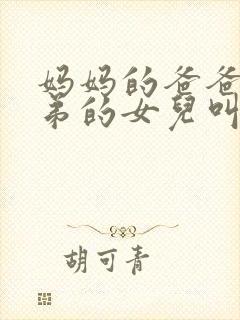 妈妈的爸爸
弟的女兒叫
胡可青